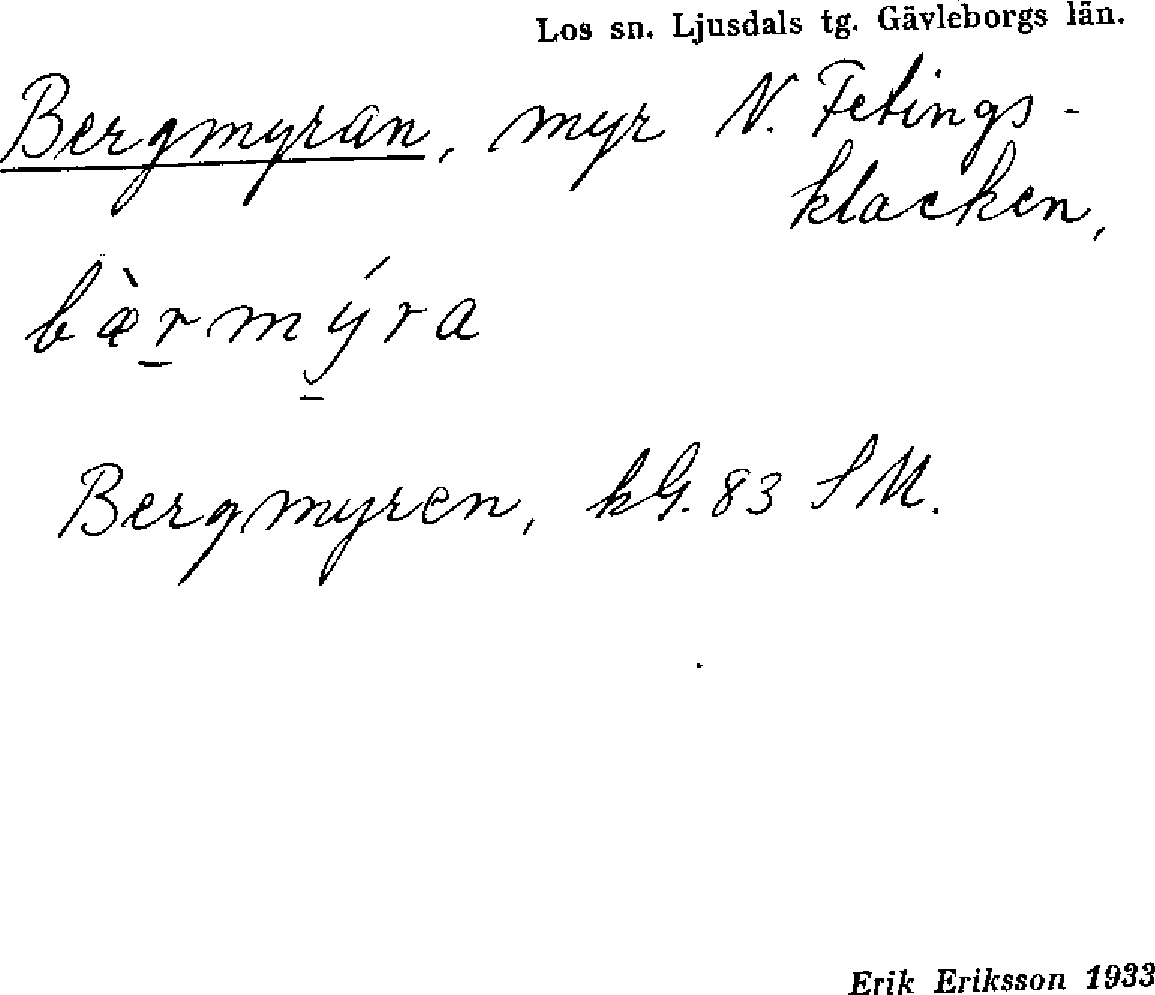 Los sn. Ljusdals tg. Gävleborgs län.
Bergmyran, myr N. Fetings-
klacken,
bæ̀r̠mý̠ra
Bergmyren, kG. 83 SM.
Erik Eriksson 1933